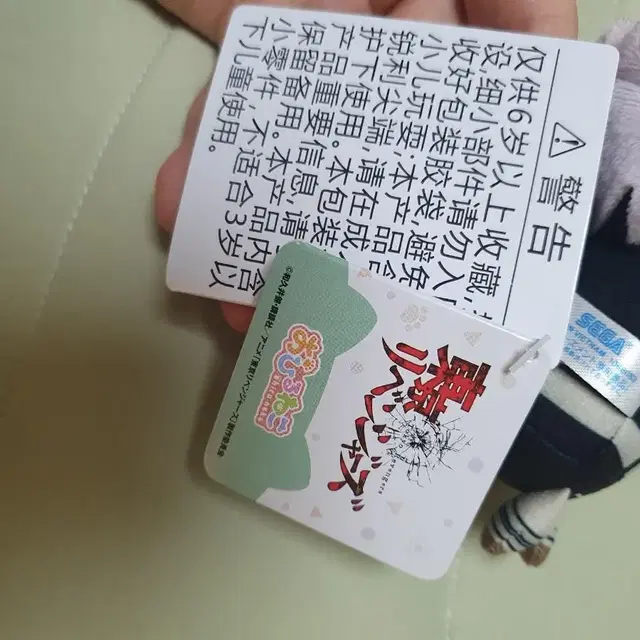 ⚠ 警告
仅供6岁以上收藏,
设:细小部件请勿入
收好包装胶袋,避免
小儿玩耍;本产品含
锐利尖端,请在成
护下使用。本包装
产品重要信息,请
保留备用。本产品内含
小零件,不适合3岁以
下儿童使用。
東京
リベンジャーズ
おひるねこ
©和久井健・講談社/アニメ「東京リベンジャーズ」製作委員会
SEGA